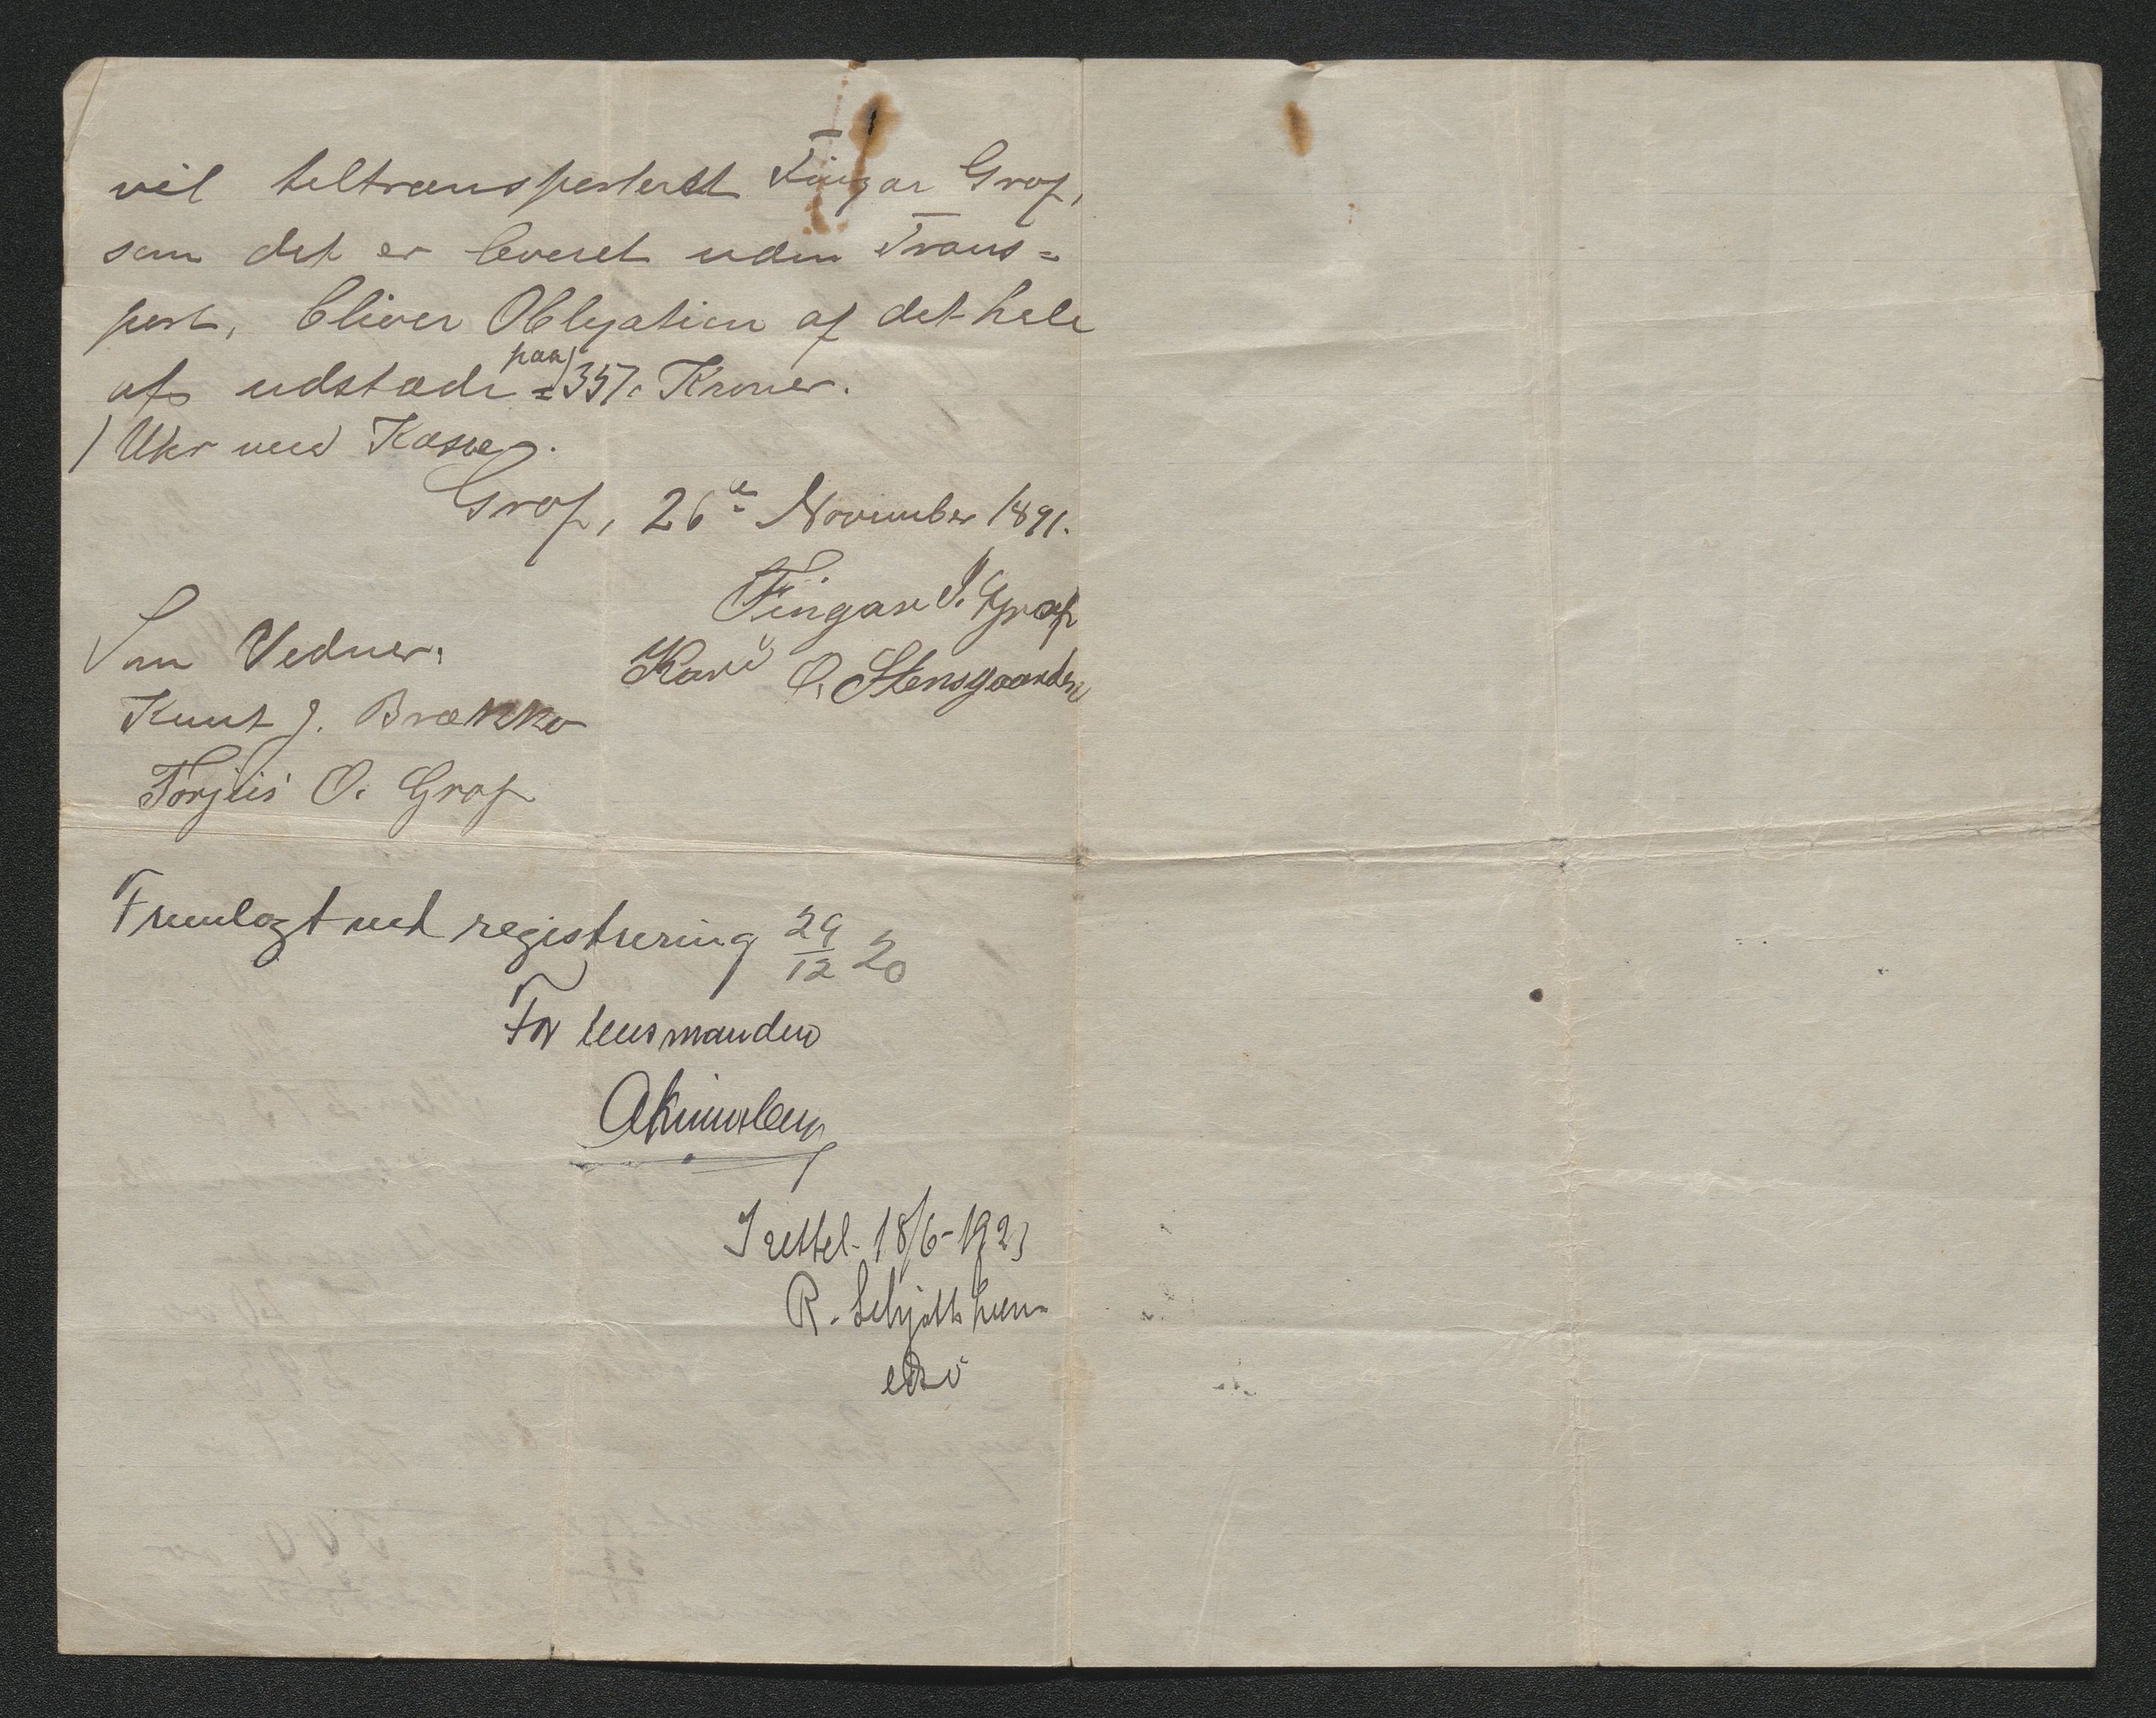 vil teltransportertt Fingar Grof,
som det er leveret uden Trans=
port, bliver Obligation af det hele
afs udstæde paa) =357. Kroner.
/ Uhr med Kasse.
Grof, 26de November 1891.
Fingar J. Grof
Kari O. Stensgaarden
Som Vedner.
Knut J. Brække
Torjus O. Grof
Fremlagt ved registrering 29/12 20
For lensmanden
I rettel. 18/6-1923
R. Schjøtt